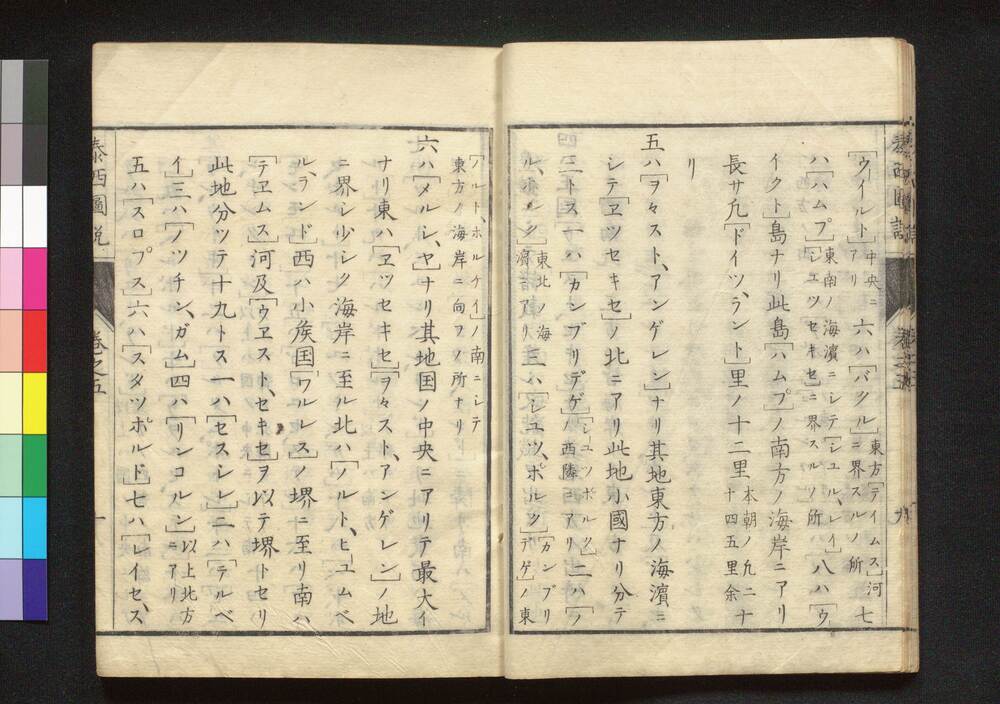 「ウーイルト」中央ニアリ六ハ「バクル」東方「テイムス」河ニ界スルノ所七
ハ「ハムプ」東南ノ海濱ニシテ「シユル、レイ」「シユツ」「セキセ」ニ界スルノ所ハ八ハ「ウ
イクト」島ナリ此島「ハムプ」ノ南方ノ海岸ニアリ
長サ凡「ドイツ、ラント」里ノ十二里本朝ノ凡二十十四五里余ナ
リ
五ハ「ヲヽスト、アンゲレン」ナリ其地東方ノ海濱ニ
シテ「ヱツセキセ」ノ北ニアリ此地小國ナリ分テ
三トス一ハ「カンブリデゲ」「シユツボルク」ノ西隣ニアリ二ハ「ノ
ル、ホルク」東北ノ海濱ニアリ三ハ「シユツ、ポルク」「カンブリデゲ」ノ東
「ノルト、ホルケイ」ノ南ニシテ
東方ノ海岸ニ向フノ所ナリ
六ハ「メルシ、ヤ」ナリ其地国ノ中央ニアリテ最大イ
ナリ東ハ「ヱツセキセ」「ヲヽスト、アンゲレン」ノ地
ニ界シ少シク海岸ニ至ル北ハ「ノルト、ヒユムベ
ル、ランド」西ハ小矦国「ワルレス」ノ堺ニ至リ南ハ
「テヱムス」河及「ウヱスト、セキセ」ヲ以テ堺トセリ
此地分ツテ十九トス一ハ「セスシレ」二ハ「テルベ
イ」三ハ「ノツチン、ガム」四ハ「リンコルン」以上北方ニアリ
五ハ「スロプス」六ハ「スタツポルド」七ハ「レイセ、ス
泰西圖説
巻之五